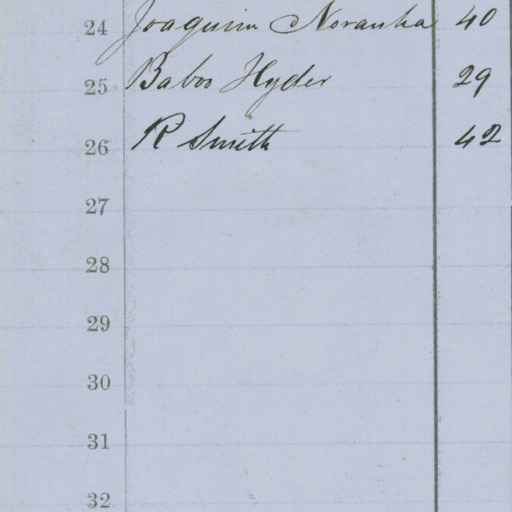 24 Joaquim Noranha 40
25 Babos Hyder 29
26 R Smith 42
27
28
29
30
31
32